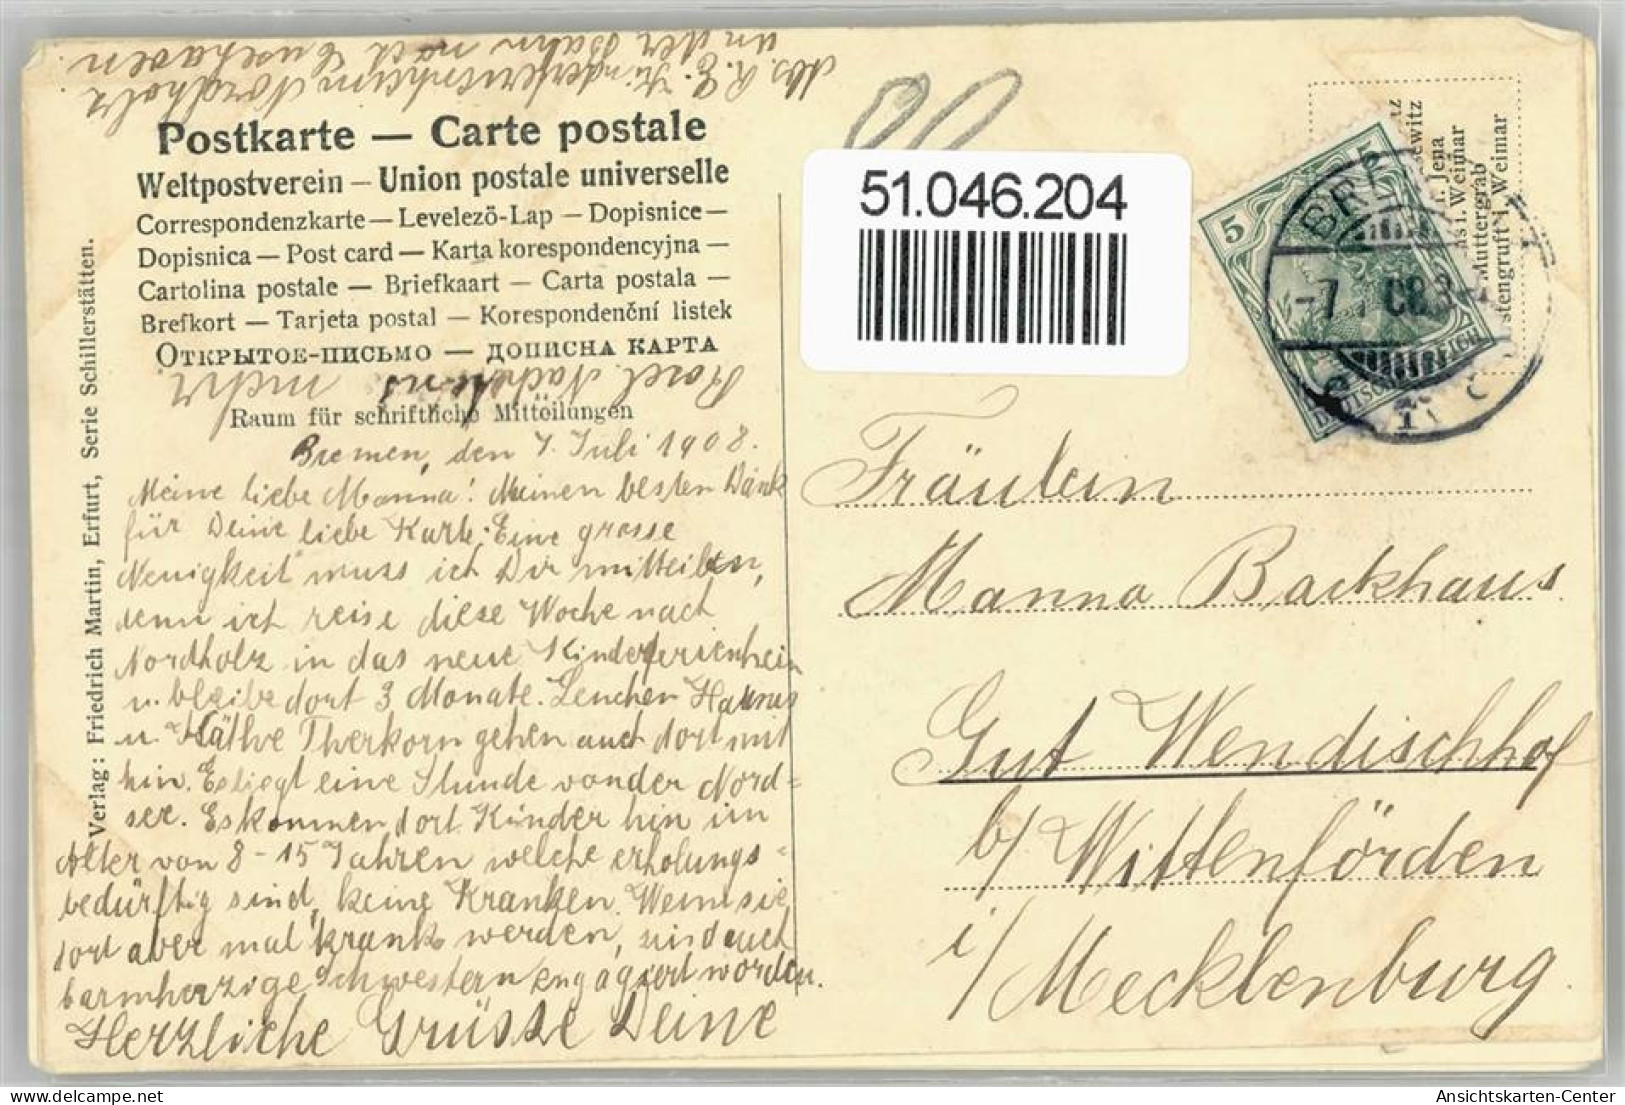 an der Bahn nach Cuxhaven
Abs. R. E. Kinderferienheim Nordholz
Postkarte — Carte postale
Weltpostverein — Union postale universelle
Correspondenzkarte — Levelezö-Lap — Dopisnice —
Dopisnica — Post card — Karta korespondencyjna —
Cartolina postale — Briefkaart — Carta postala —
Brefkort — Tarjeta postal — Korespondenční listek
Открытое-письмо — дописна карта
nicht
Raum für schriftliche Mitteilungen
Bremen, den 7. Juli 1908.
Meine liebe Manna! Meinen besten Dank
für Deine liebe Karte. Eine grosse
Neuigkeit muss ich Dir mitteilen,
denn ich reise diese Woche nach
Nordholz in das neue Kinderferienheim
u. bleibe dort 3 Monate. Lenchen Hannes
u. Käthe Therkorn gehen auch dort mit
hin. Es liegt eine Stunde von der Nord=
see. Es kommen dort Kinder hin im
Alter von 8-15 Jahren welche erholungs=
bedürftig sind, keine Kranken. Wenn sie
dort aber mal krank werden, sind auch
barmherzige Schwestern engagiert worden.
Herzliche Grüsse Deine
Verlag: Friedrich Martin, Erfurt, Serie Schillerstätten.
51.046.204
5
BRE
-7.7.08.3-4
DEUTSCHES REICH
ewitz
i. Jena
s i. Weimar
Muttergrab
stengruft i. Weimar
Fräulein
Manna Backhaus
Gut Wendischhof
b/ Wittenförden
i/ Mecklenburg
AnsichtsKarten-Center